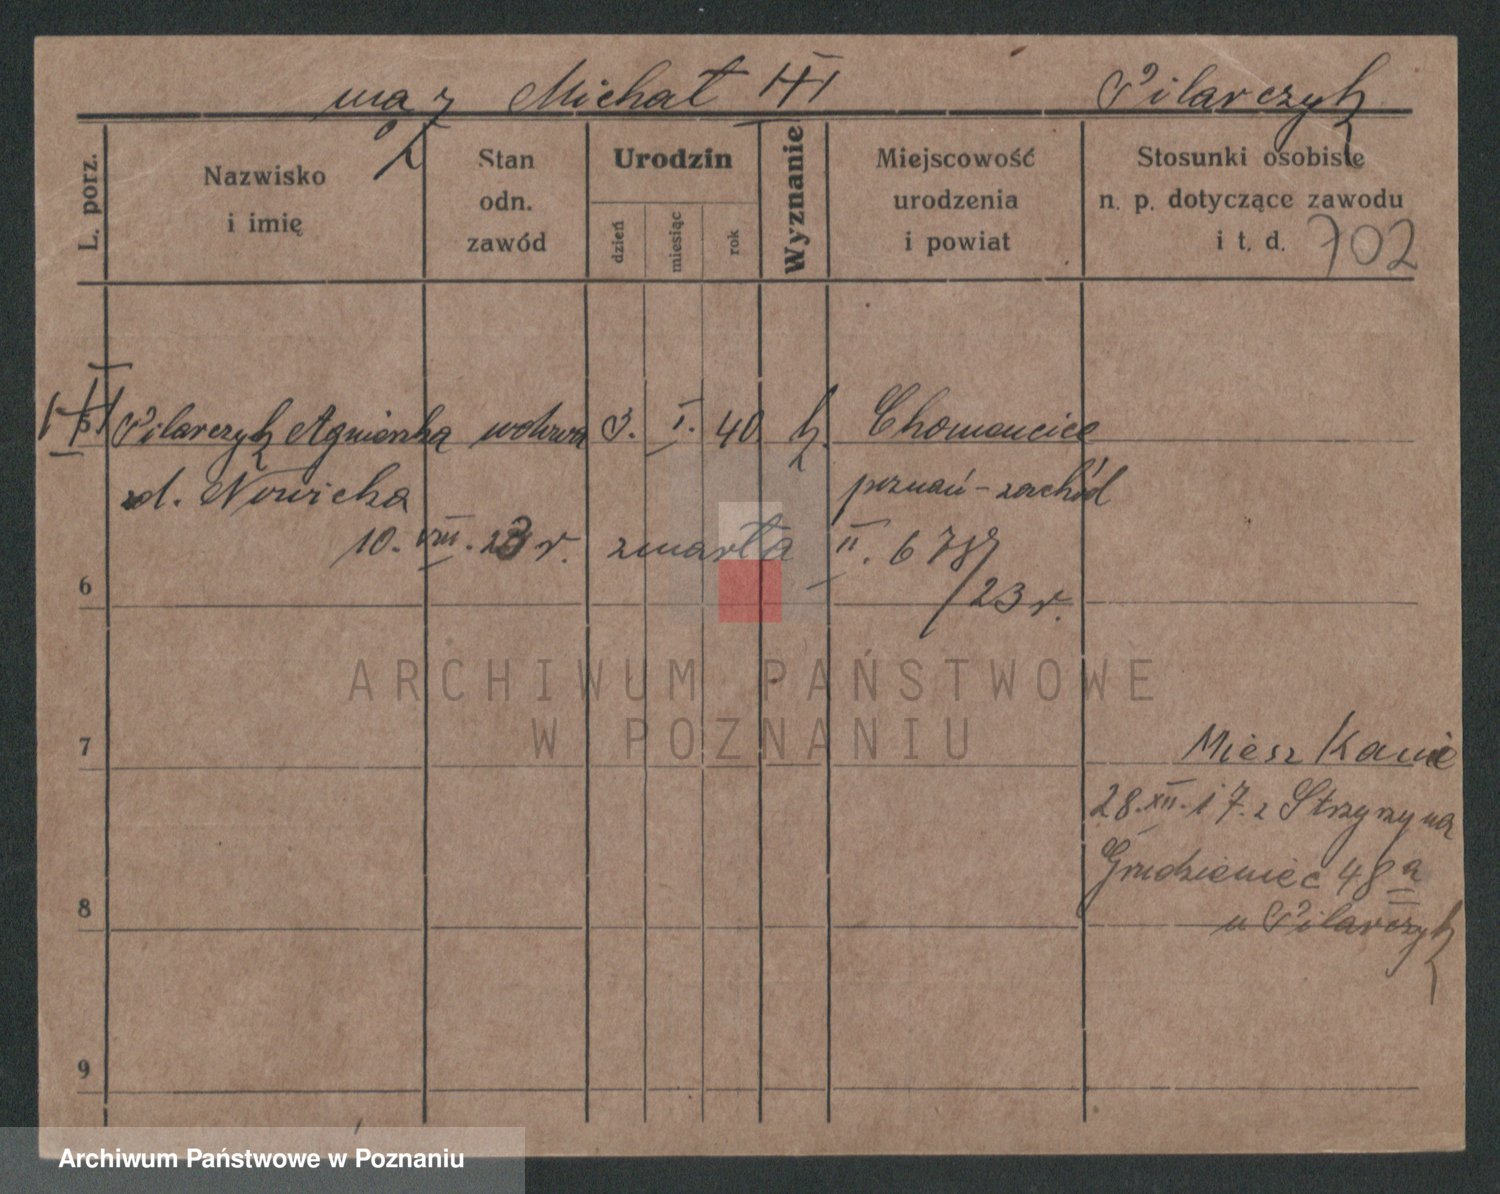 mąż Michał Pilarczyk
L. porz.
Nazwisko
i imię
Stan
odn.
zawód
Urodzin
dzień
miesiąc
rok
Wyznanie
Miejscowość
urodzenia
i powiat
Stosunki osobiste
n. p. dotyczące zawodu
i t. d.
702
5
Pilarczyk Agnieszka wdowa 3. I. 40 k. Chomencice
zd. Nowicka poznań-zachód
10. VIII. 23 r. zmarła II. 678
/23 r.
6
ARCHIWUM PAŃSTWOWE
W POZNANIU
7
Mieszkanie
28. XII. 17. z Strzyżyna
Grudzieniec 48 a
u Pilarczyk
8
9
Archiwum Państwowe w Poznaniu